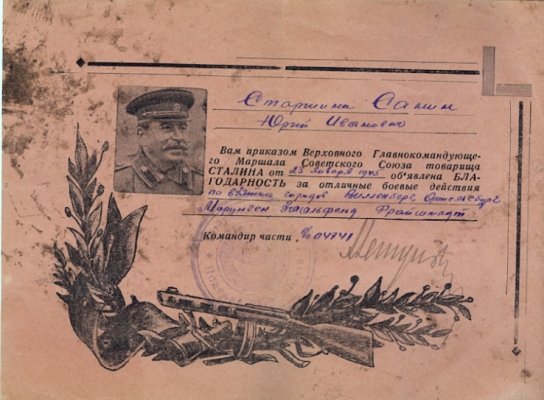 Старшина Сапин
Юрий Иванович
Вам приказом Верховного Главнокомандующе-
го Маршала Советского Союза товарища
СТАЛИНА от 23 января 1945 об'явлена БЛА-
ГОДАРНОСТЬ за отличные боевые действия
по взятию городов Вилленберг, Ортельсбург
Морунген Заальфельд Фрайштадт
Командир части № 04741